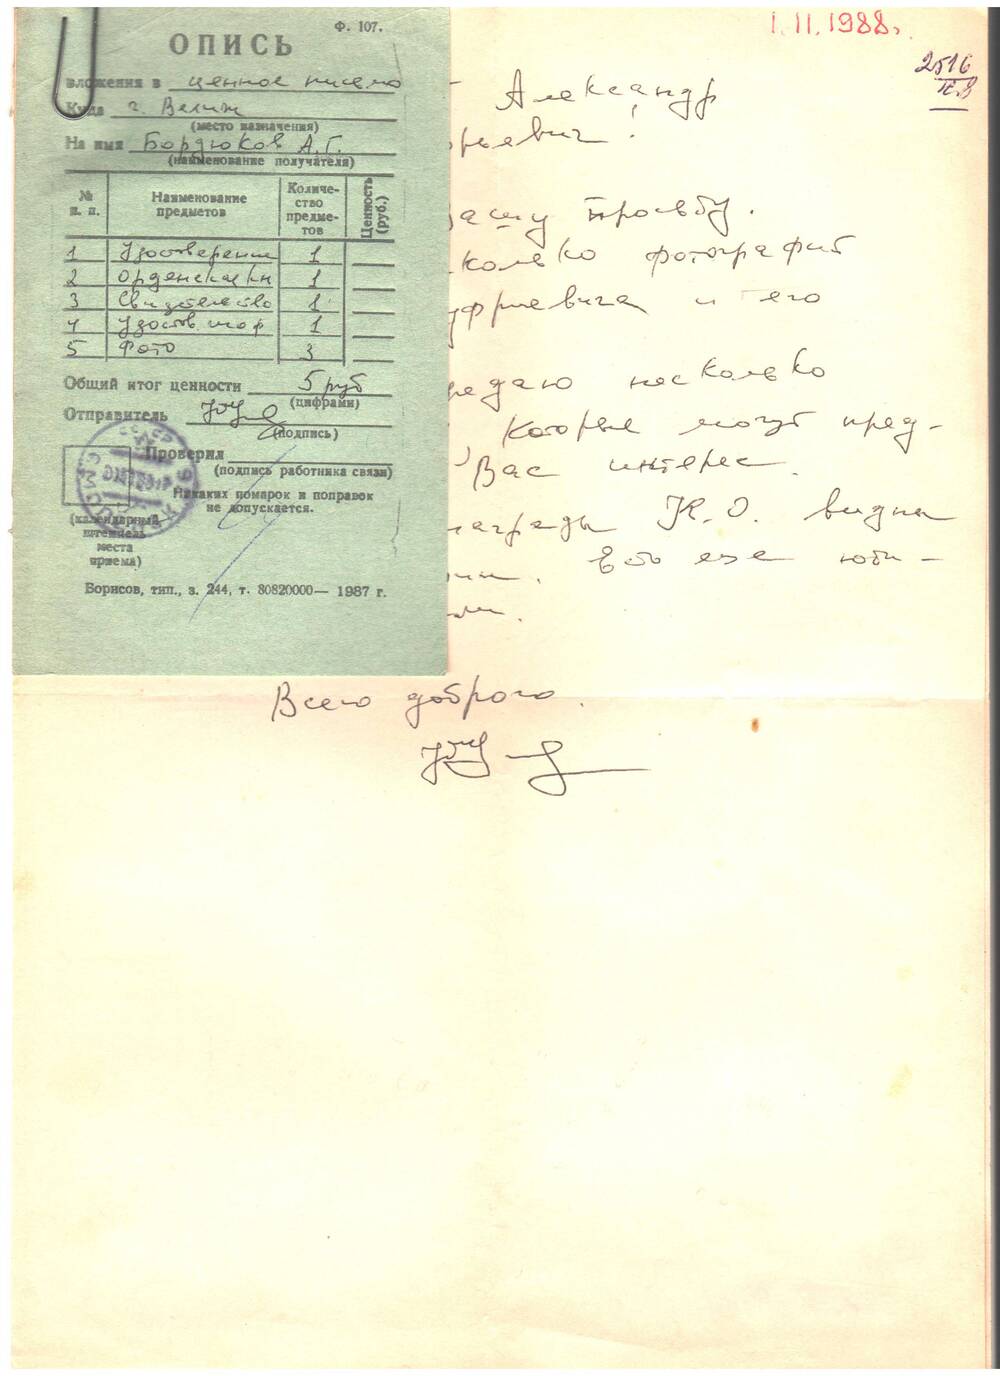 Ф. 107.
ОПИСЬ
вложения в ценное письмо
Куда г. Велиж
(место назначения)
На имя Бордюков А.Г.
(наименование получателя)
№ п. п. Наименование предметов Количество предметов Ценность (руб.)
1 Удостверение 1
2 Орденская кн 1
3 Свидетельство 1
4 Удостов. 1
5 Фото 3
Общий итог ценности 5 руб
(цифрами)
Отправитель
(подпись)
Проверил
(подпись работника связи)
Никаких помарок и поправок
не допускается.
(календарный
штемпель
места
приема)
Борисов, тип., з. 244, т. 80820000— 1987 г.
1.II.1988г.
2516
Александр
рьевич!
Вашу просьбу.
колько фотографий
уфриевича и его
редаю несколько
которые могут пред-
Вас интерес.
награды К.О. видны
Его еще юби-
Всего доброго.